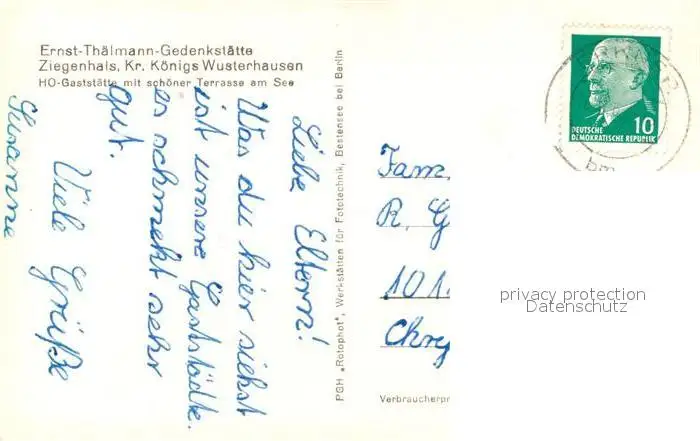 Ernst-Thälmann-Gedenkstätte
Ziegenhals, Kr. Königs Wusterhausen
HO-Gaststätte mit schöner Terrasse am See
Liebe Eltern!
Was du hier siehst
ist unsere Gaststädte.
es schmekt sehr
gut.
Viele Grüße
Susanne
PGH „Rotophot", Werkstätten für Fototechnik, Bestensee bei Berlin
10
DEUTSCHE
DEMOKRATISCHE REPUBLIK
bm
Fam.
R. G
101.
Chry
privacy protection
Datenschutz
Verbraucherpr